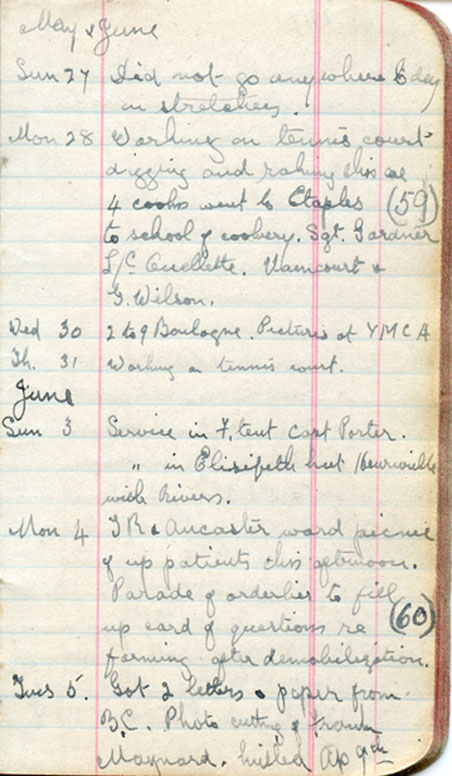 May & June
Sun 27 Did not go anywhere to day
on stretchers.
Mon 28 Working on tennis court
digging and raking this
4 cooks went to Etaples (59)
to school of cookery. Sgt. Gardner
L/C Ouellette. &
G. Wilson.
Wed 30 2 to 9 Boulogne. Pictures at YMCA
Th. 31 Working on tennis court.
June
Sun 3 Service in F. tent Capt Porter.
" in hut
with Rivers.
Mon 4 & Ancaster ward picnic
of up patients this afternoon.
Parade of orderlies to fill
up card of questions re (60)
farming after demobilization.
Tues 5. Got 2 letters & paper from
B.C. Photo cutting of
Maynard. killed Ap 9th